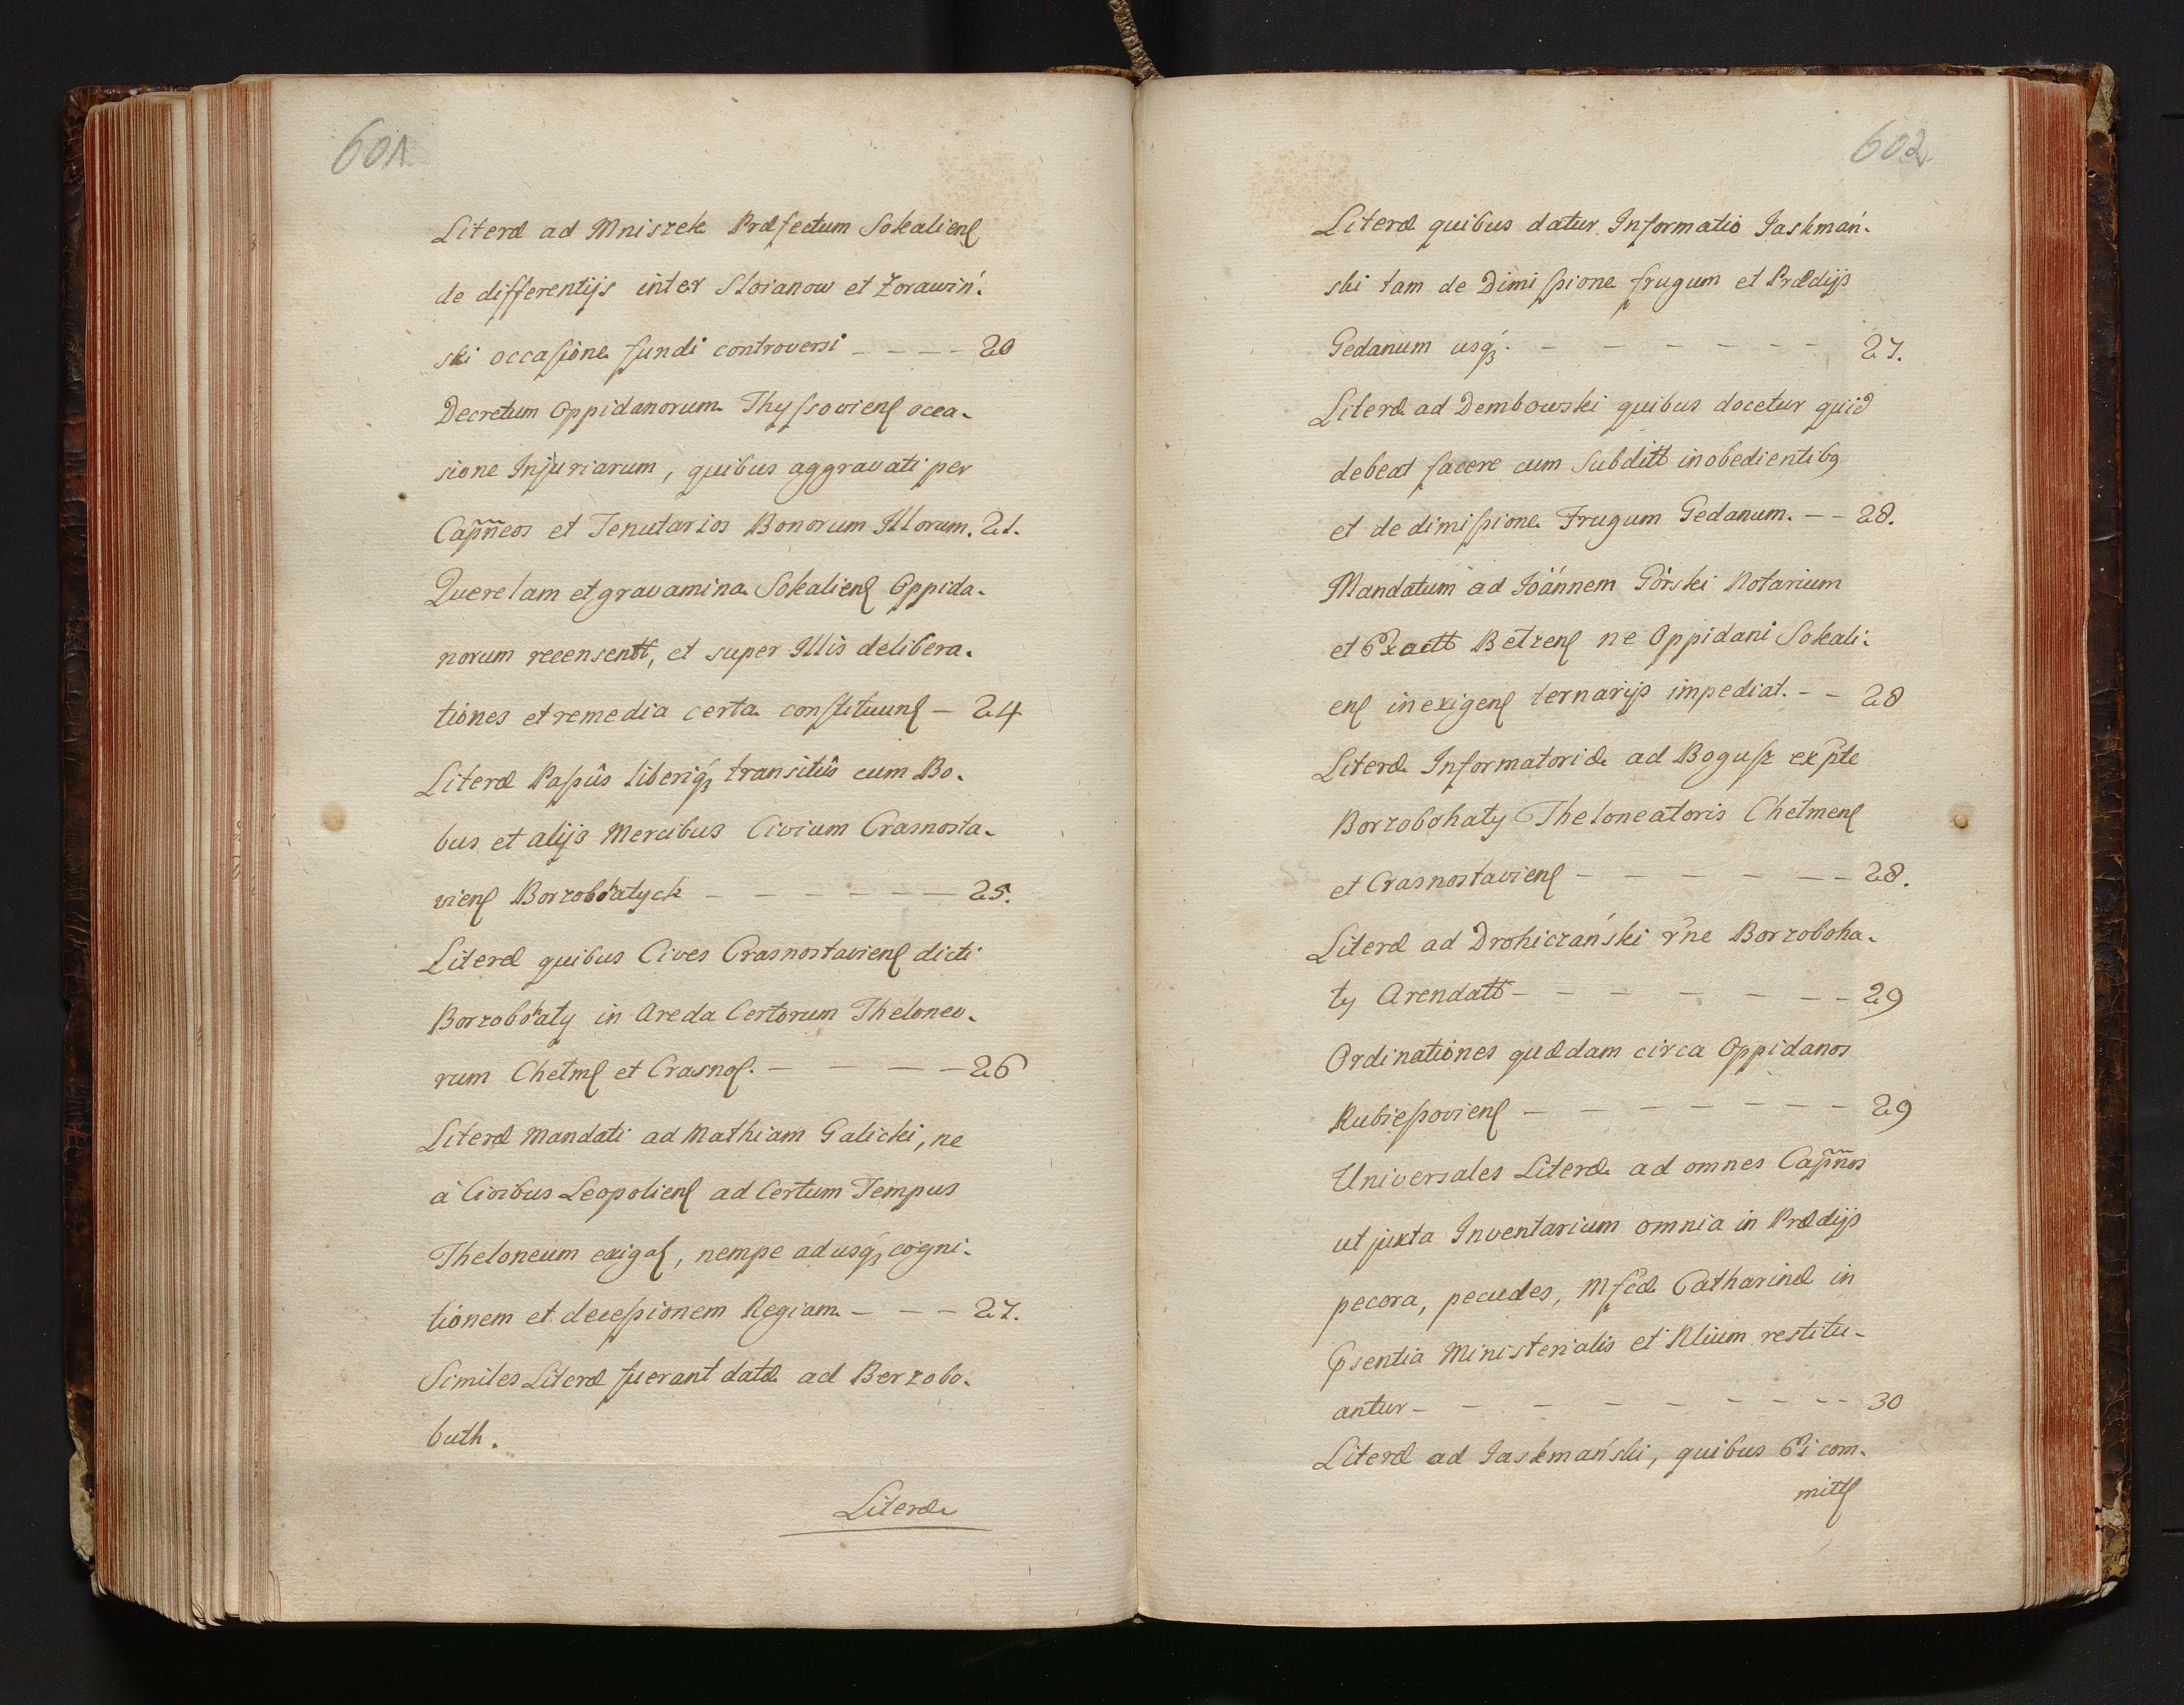 601
Literæ ad Mniszek Præfectum Sokalienſ
de differentijs inter Stoianow et Zorawiń-
ski occaſione fundi controversi - - - - 20
Decretum Oppidanorum Thyſsovienſ occa-
sione Injuriarum, quibus aggravati per
Cap̃ñeos et Tenutarios Bonorum Illorum. 21.
Querelam et gravamina Sokalienſ Oppida-
norum recensentt, et super Illis delibera-
tiones et remedia certa conſtituunſ - 24
Literæ Paſsûs liberiq́ꝫ transitûs cum Bo-
bus et alijs Mercibus Civium Crasnosta-
vienſ Borzobohatyck - - - - - - 25.
Literæ quibus Cives Crasnostavienſ dicti
Borzobohaty in Areda Certorum Theloneo-
rum Chelmſ et Crasnoſ. - - - - 26
Literæ Mandati ad Mathiam Galicki, ne
à Civibus Leopolienſ ad Certum Tempus
Theloneum exigaſ, nempe ad usq́ꝫ cogni-
tionem et deceſsionem Regiam - - - 27.
Similes Literæ fuerant datæ ad Berzobo-
buth.
Literæ
602
Literæ quibus datur Informatio Jaskmań-
ski tam de Dimiſsione frugum et Prædijs
Gedanum usq́ꝫ. - - - - - - - 27.
Literæ ad Dembowski quibus docetur quid
debeat facere cum Subditt inobedientibꝯ
et de dimiſsione Frugum Gedanum. - - 28.
Mandatum ad Joánnem Górski Notarium
et Exactt Belzenſ ne Oppidani Sokali-
enſ in exigenſ ternarijs impediat. - - 28
Literæ Informatoriæ ad Boguſz ex p̃te
Borzobohaty Theloneatoris Chelmenſ
et Crasnostavienſ - - - - - - - 28.
Literæ ad Drohiczański r̃ne Borzoboha-
ty Arendatt - - - - - - - 29
Ordinationes quædam circa Oppidanos
Rubieſsovienſ - - - - - - - - 29
Universales Literæ ad omnes Cap̃ños
ut juxta Inventarium omnia in Prædijs
pecora, pecudes, Mſcæ Catharinæ in
Pꝛsentia Ministerialis et Nlium restitu-
antur - - - - - - - - - 30
Literæ ad Jaskmański, quibus Ei com-
mittſ